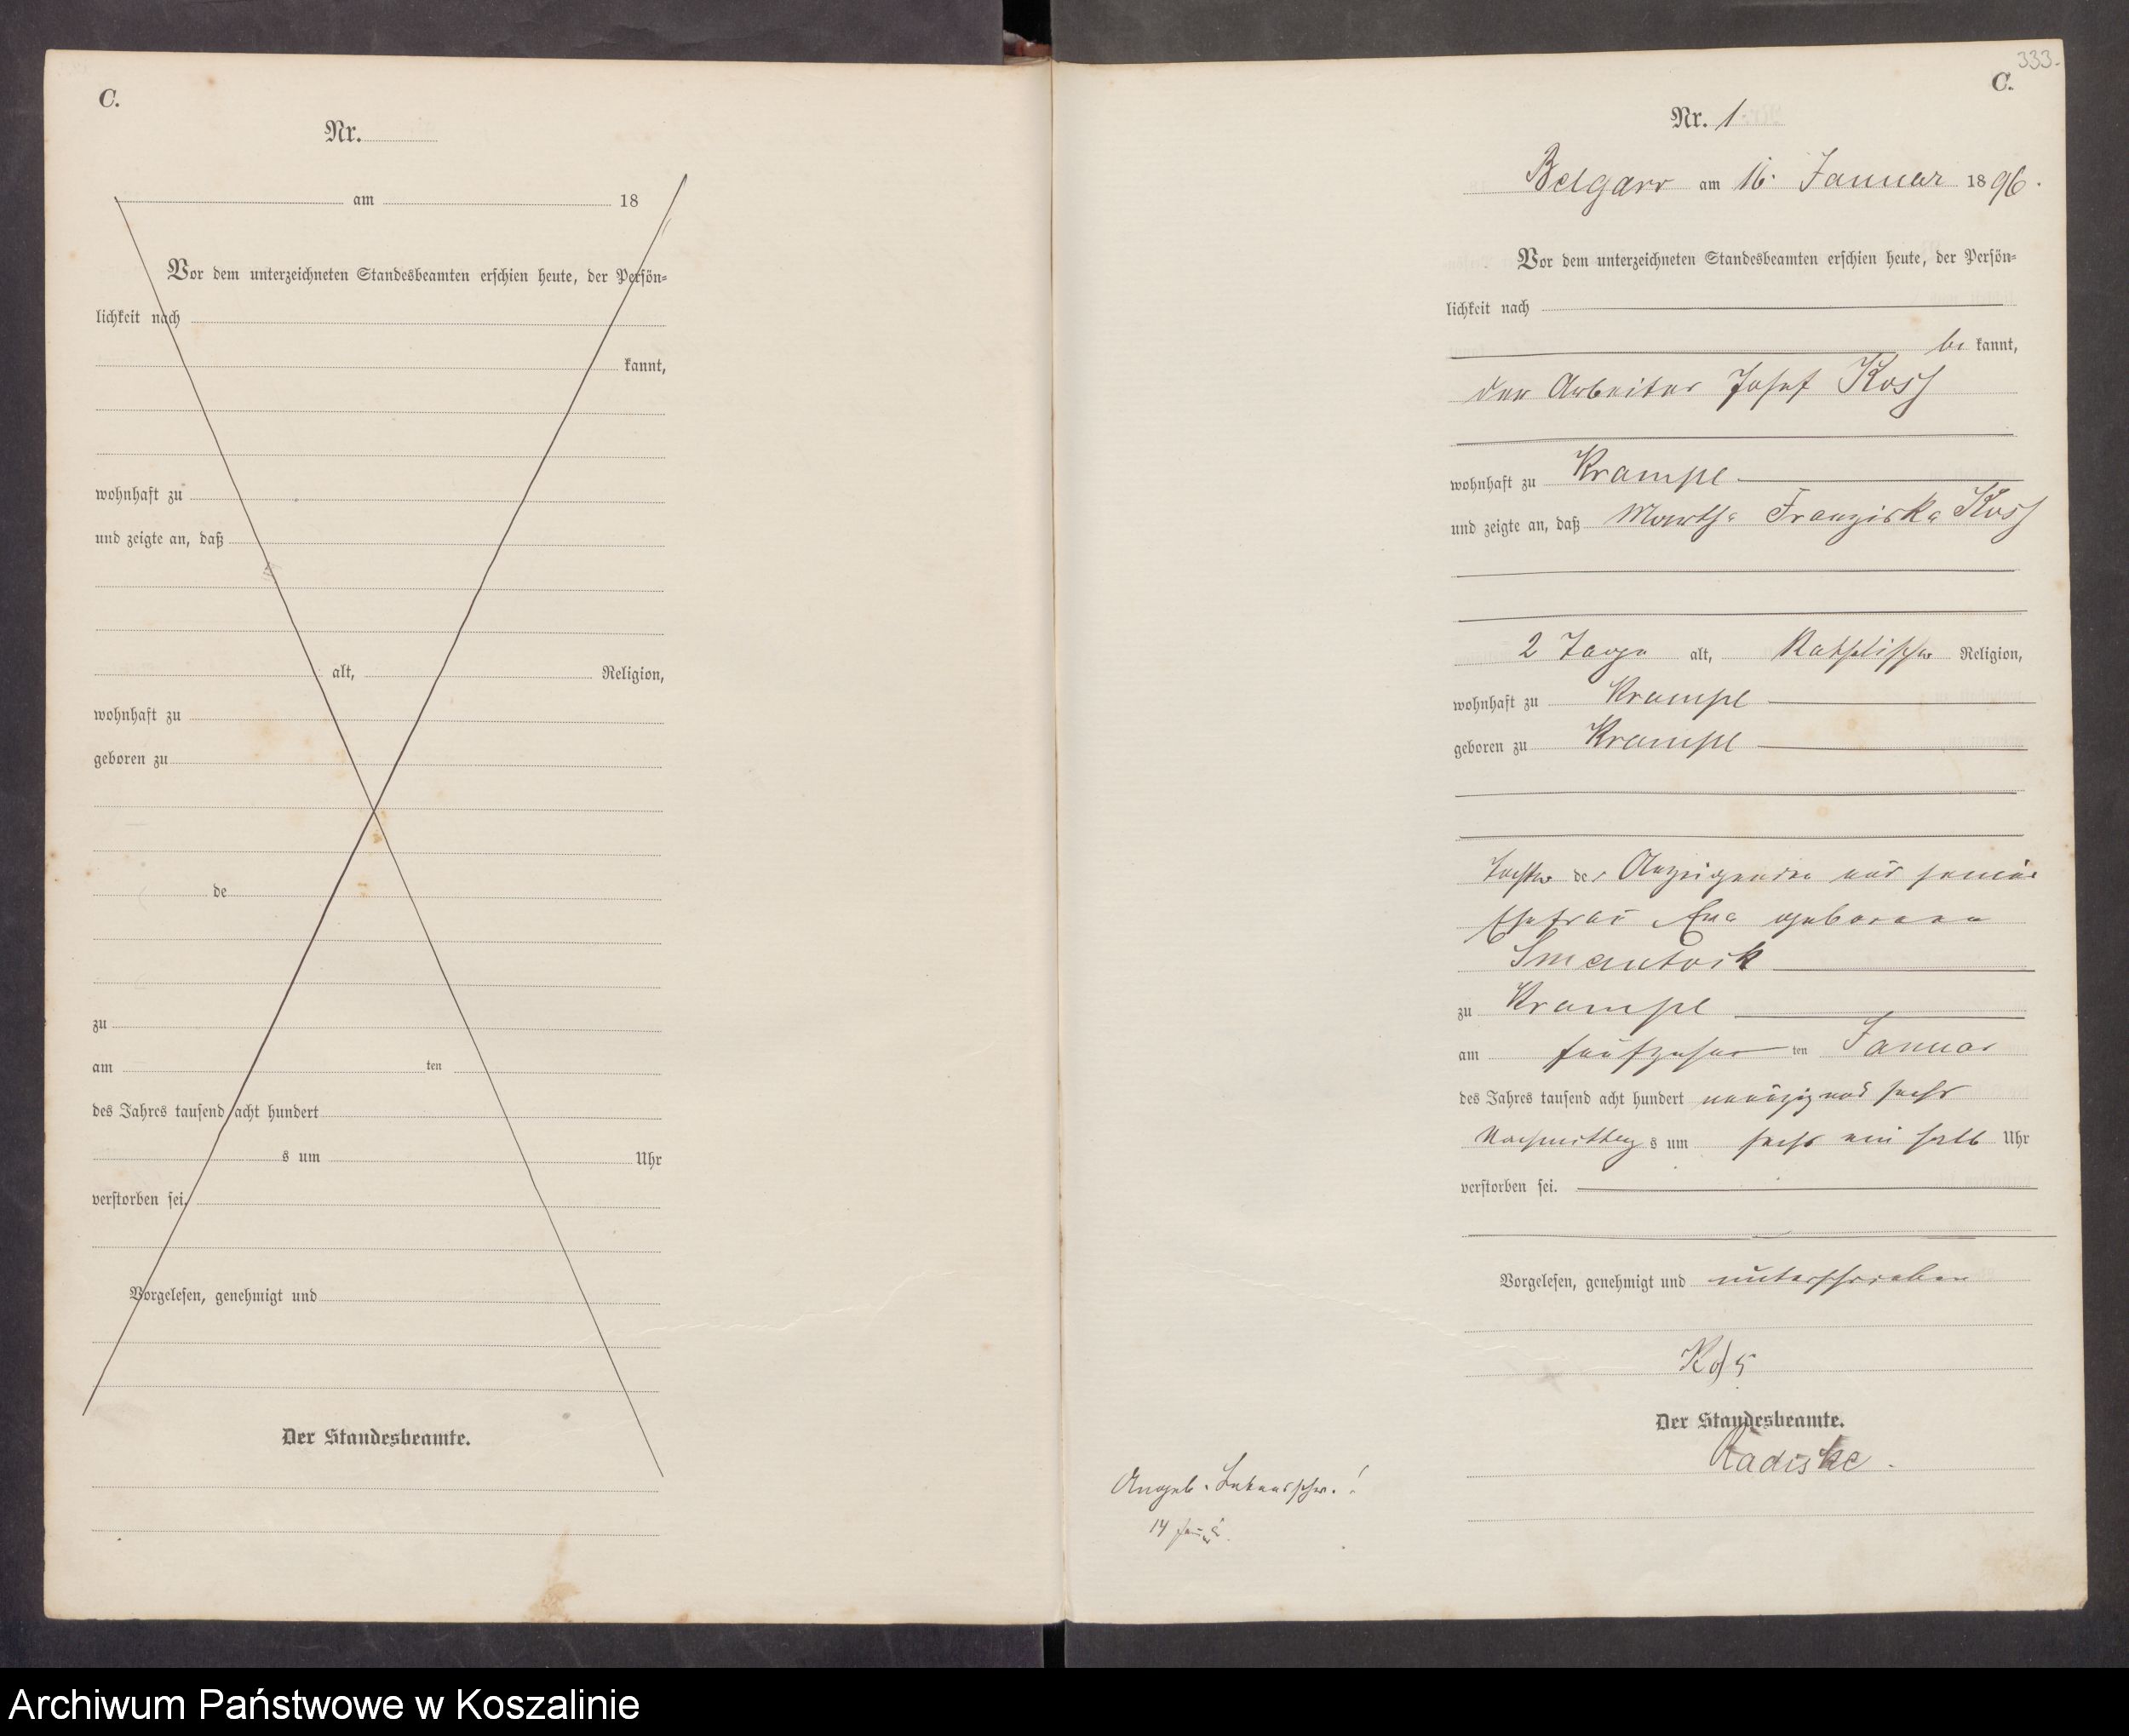 C.
Nr.
am 18
Vor dem unterzeichneten Standesbeamten erschien heute, der Persön-
lichkeit nach
kannt,
wohnhaft zu
und zeigte an, daß
alt, Religion,
wohnhaft zu
geboren zu
de
zu
am ten
des Jahres tausend acht hundert
s um Uhr
verstorben sei.
Vorgelesen, genehmigt und
Der Standesbeamte.
333.
C.
Nr. 1
Belgard am 16. Januar 1896.
Vor dem unterzeichneten Standesbeamten erschien heute, der Persön-
lichkeit nach
be kannt,
der Arbeiter Josef Koss
wohnhaft zu Krampe
und zeigte an, daß Martha Franziska Koss
2 Tage alt, katholischer Religion,
wohnhaft zu Krampe
geboren zu Krampe
Tochter des Anzeigenden und seiner
Ehefrau geborene
zu Krampe
am fünfzehn ten Januar
des Jahres tausend acht hundert neunzig und sechs
Nachmittag s um sechs ein halb Uhr
verstorben sei.
Vorgelesen, genehmigt und unterschrieben
Koss
Der Standesbeamte.
Radiske.
Angeb. Lebensschw.!
14
Archiwum Państwowe w Koszalinie